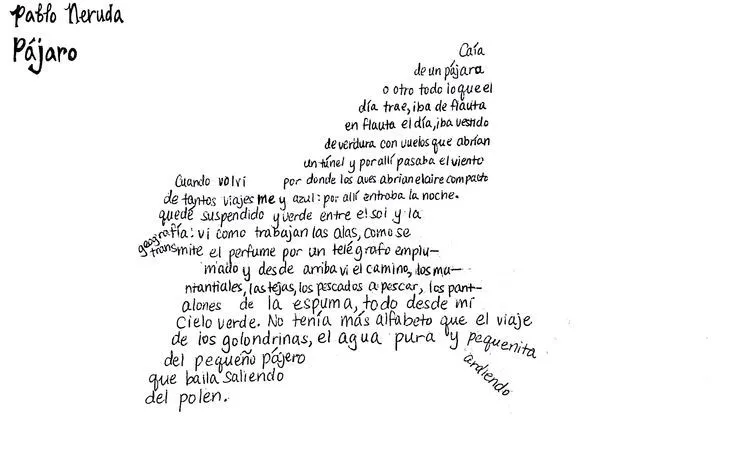 Pablo Neruda
Pájaro
Caía
de un pájara
o otro todo lo que el
día trae, iba de flauta
en flauta el día, iba vestido
de verdura con vuelos que abrían
un túnel y por allí pasaba el viento
por donde las aves abrian el aire compacto
Cuando volví
de tantos viajes me y azul: por allí entroba la noche.
quedé suspendido y verde entre el sol y la
geografía: vi como trabajan las alas, como se
transmite el perfume por un telégrafo emplu-
mado y desde arriba vi el camino, los ma-
nantiales, las tejas, los pescados a pescar, los pant-
alones de la espuma, todo desde mi
Cielo verde. No tenía más alfabeto que el viaje
de los golondrinas, el agua pura y pequenita
del pequeño pájero
ardiendo
que baila saliendo
del polen.